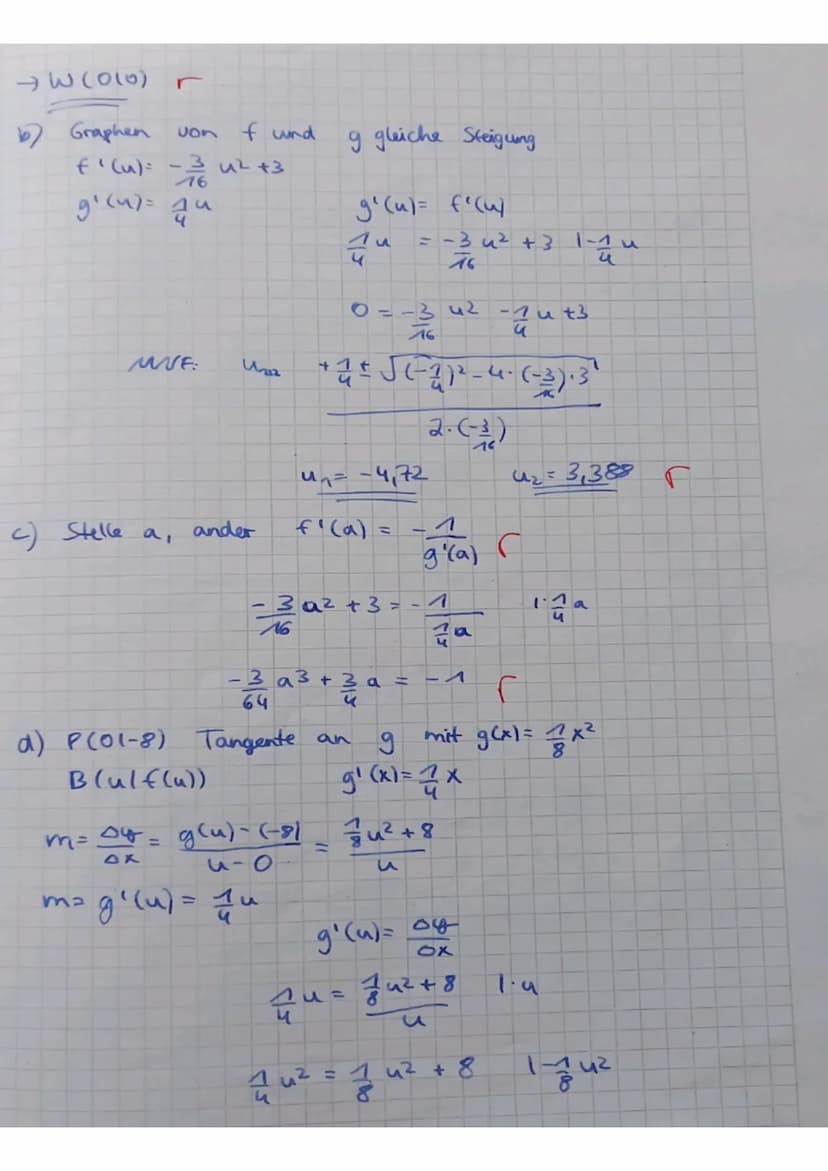 → W(0|0) r
b) Graphen von f und g gleiche Steigung
f'(u)= -3/16 u² +3
g'(u)= 1/4 u g'(u)= f'(u)
1/4 u = -3/16 u² + 3 |-1/4 u
0 = -3/16 u² -1/4 u +3
MNF: u₁,₂ +1/4 ± √((-1/4)² - 4·(-3/16)·3) / 2·(-3/16)
u₁= -4,72 u₂= 3,388 r
c) Stelle a, an der f'(a) = -1/g'(a) r
-3/16 a² + 3 = -1/(1/4 a) |·1/4 a
-3/64 a³ + 3/4 a = -1 r
d) P(0|-8) Tangente an g mit g(x)= 1/8 x²
B(u|f(u)) g'(x)= 1/4 x
m= Δy/Δx = (g(u)-(-8))/(u-0) = (1/8 u² + 8)/u
m= g'(u) = 1/4 u
g'(u)= Δy/Δx
1/4 u = (1/8 u² + 8)/u |·u
1/4 u² = 1/8 u² + 8 |-1/8 u²